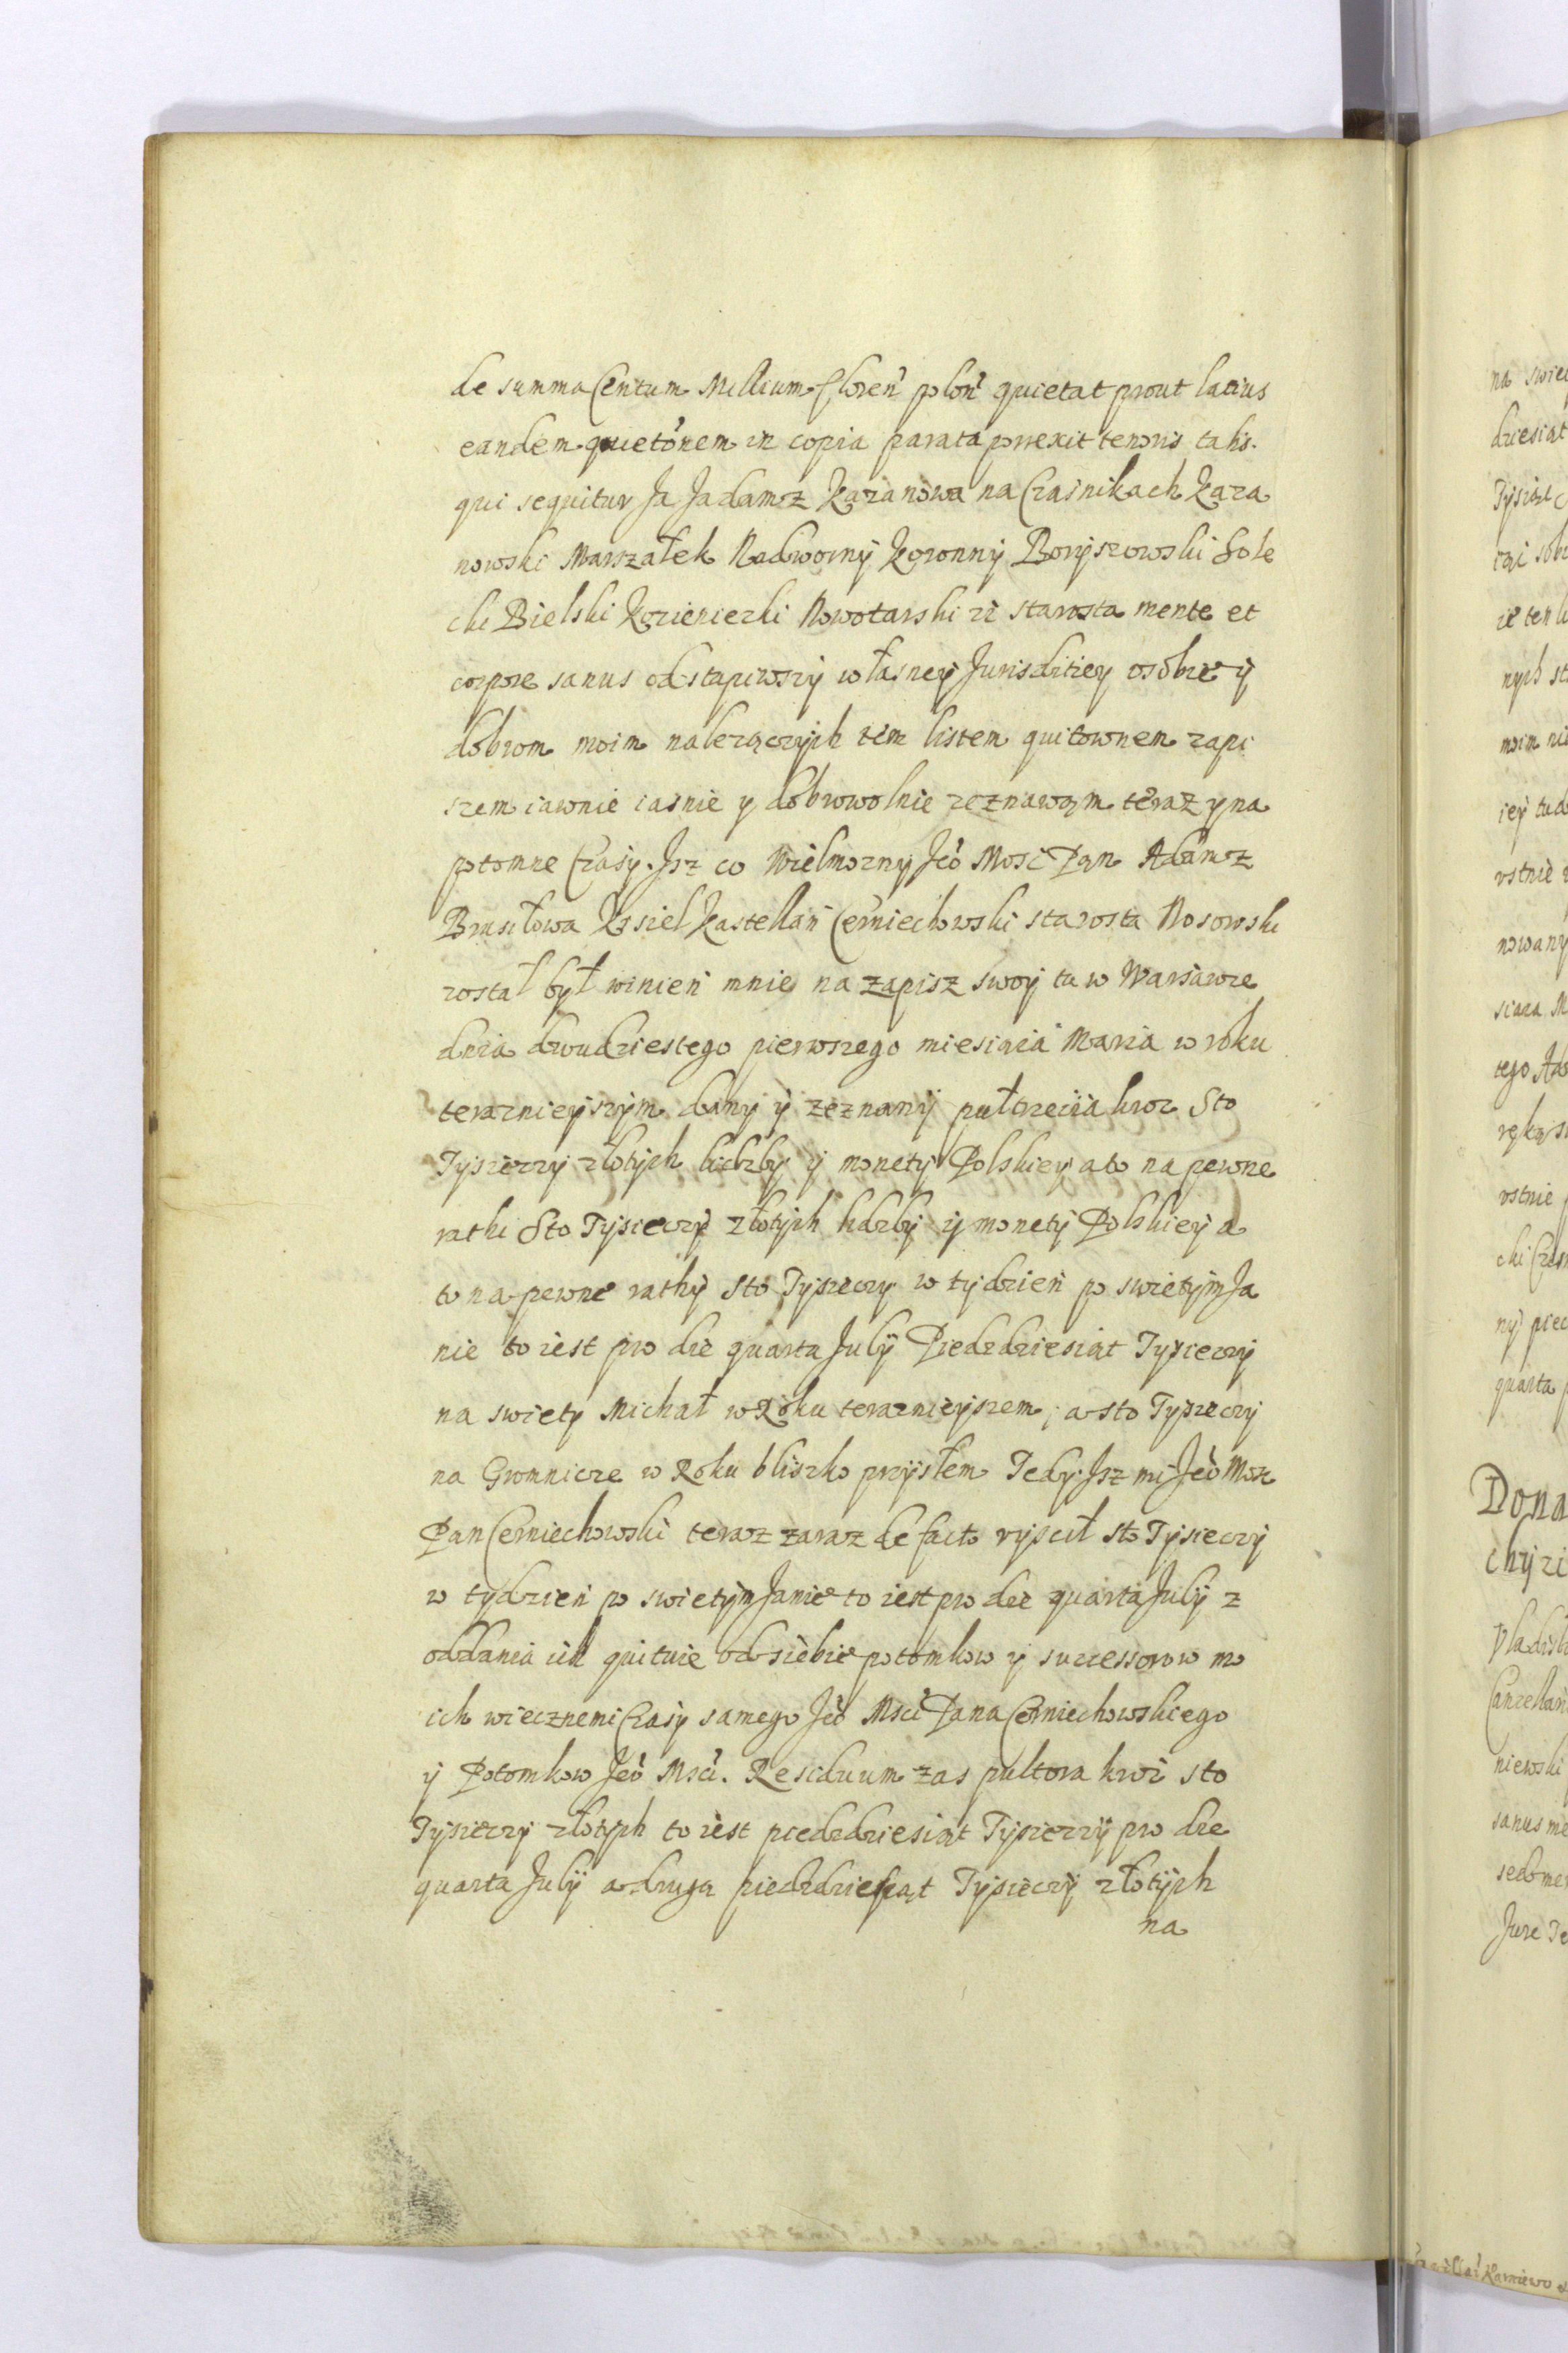 de summa Centum Millium floren̄ polon̄ quietat prout latius
eandem quietōnem in copia parata porrexit tenoris talis.
qui sequitur Ja Jadam z Kazanowa na Czasnikach Kaza
nowski Marszałek Nadworny Koronny Boryszowski Sole
cki Bielski Kozieniecki Nowotarski zc̄ starosta mente et
corpore sanus odstapiwszy własney Jurisditiey osobie y
dobrom moim nalezączych tem listem quitownem zapi
szem iawnie iasnie y dobrowolnie zeznawąm teraz y na
potomne Czasy. Jsz co Wielmozny Jeo Mosc Pan Adam z
Brusiłowa Kisiel Kastellan Cerniechowski starosta Nosowski
zostal był winien mnie na zapisz swoy tu w Warsawie
dnia dwudziestego pierwszego miesiaca Marca w roku
teraznieyszym dany y zeznany pułtrzecia kroc Sto
Tysieczy złotych liczby y monety Polskiey a to na pewne
ratki Sto Tysieczy złotych liczby y monety Polskiey a
to na pewne rathy sto Tysieczy w tydzien po swietym Ja
nie to iest pro die quarta July Piedzdziesiat Tysieczy
na swiety Michał w Roku teraznieyszem, a sto Tysieczy
na Gromnicze w Roku bliszko przyszłem Tedy Jsz mi Jeo Mosc
Pan Cerniechowski teraz zaraz de facto vyscił sto Tysieczy
w tydzien po swietym Janie to iest pro die quarta July z
oddania ich quituie od siebie potomkow y successorow mo
ich wiecznemi Czasy samego Jeo Msci Pana Cerniechowskiego
y Potomkow Jeo Msci. Residuum zas pultora kroc sto
Tysieczy złotych to iest piedzdziesiat Tysieczy pro die
quarta July a druga piedzdziesiąt Tysieczy złotych
na
na swie
dziesiat
nych
nowany
tego
vstnie
quarta
Dona
niewski
sanus me